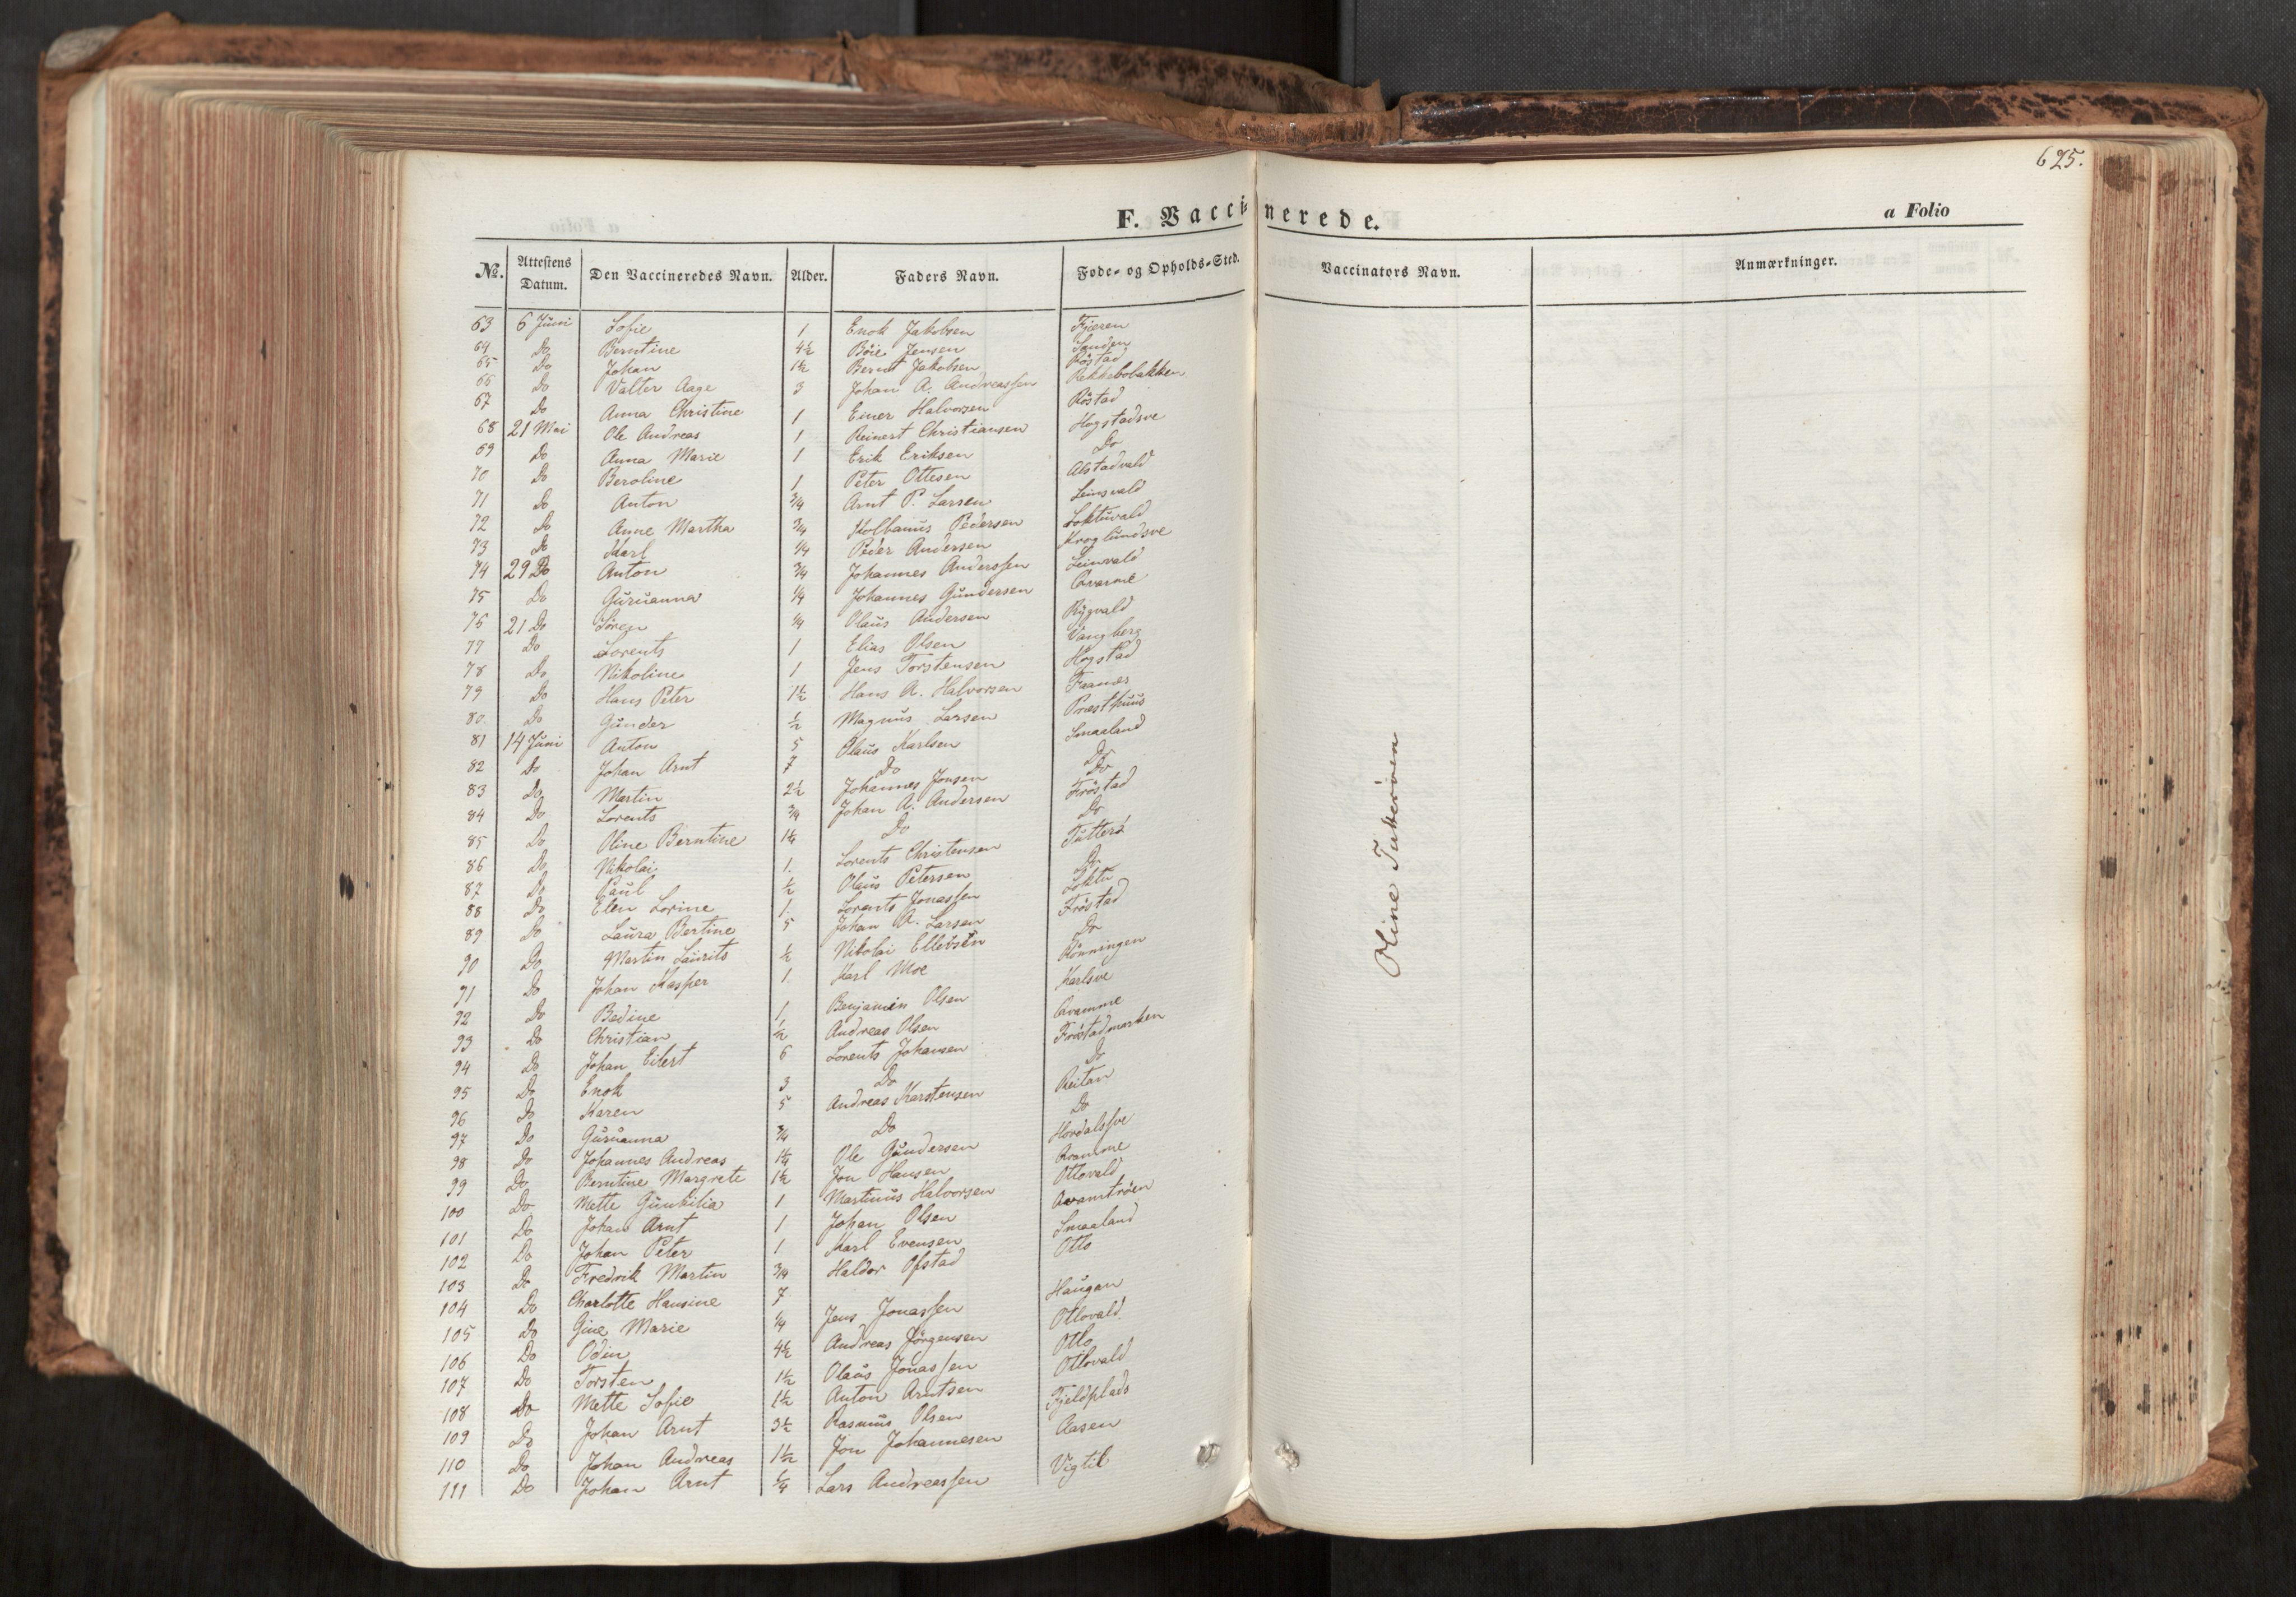 625.
F. Vaccinerede.
a Folio
№. Attestens Datum. Den Vaccineredes Navn. Alder. Faders Navn. Føde- og Opholds-Sted. Vaccinators Navn. Anmærkninger.
63 6 Juni Sofie 1 Enok Jakobsen Fjæren
64 Do Berntine 4½ Böie Jensen Sanden
65 Do Johan 1½ Bernt Jakobsen Röstad
66 Do Valter Aage 3 Johan A. Andreassen Rekkebobakken
67 Do Anna Christine 1 Einer Halvorsen Röstad
68 21 Mai Ole Andreas 1 Reinert Christiansen Hogstadsve
69 Do Anna Marie 1 Erik Eriksen Do
70 Do Beroline 1 Peter Ottesen Alstadvald
71 Do Anton ¾ Arnt P. Larsen Leinsvald
72 Do Anne Martha ¾ Kolbanus Pedersen Loktuvald
73 Do Karl ¼ Peder Andersen Kroglundsve
74 29 Do Anton ¾ Johannes Anderssen Leinvald
75 Do Guruanna ¼ Johannes Gundersen
76 21 Do Sören ¼ Olaus Andersen Rygvald
77 Do Lorents 1 Elias Olsen Vangberg
78 Do Nikoline 1 Jens Torstensen Hogstad
79 Do Hans Peter 1½ Hans A. Halvorsen Faanes
80 Do Gunder ½ Magnus Larsen Præsthuus
81 14 Juni Anton 5 Olaus Karlsen Smaaland
82 Do Johan Arnt 7 Do Do
83 Do Martin 2½ Johannes Jonsen Do
84 Do Lorents ¾ Johan A. Andersen Fröstad
85 Do Oline Berntine 1¼ Do Do
86 Do Nikolai 1. Lorents Christensen Tutterö
87 Do Paul ½ Olaus Petersen Do
88 Do Elen Lorine 1. Lorents Jonassen Loktu
89 Do Laura Bertine 5 Johan A. Larsen Fröstad
90 Do Martin Laurits ½ Nikolai Ellevsen Do
91 Do Johan Kasper 1 Karl Moe Rönningen
92 Do Bedine 1 Benjamin Olsen Karlsve
93 Do Christian ½ Andreas Olsen Qvamme
94 Do Johan Eilert 6 Lorents Johansen Fröstadmarken
95 Do Enok 3 Do Do
96 Do Karen 5 Andreas Karstensen Reitan
97 Do Guruanna ¾ Do Do
98 Do Johannes Andreas 1¼ Ole Gundersen Hordalsve
99 Do Berntine Margrete 1½ Jon Hansen
100 Do Mette Gunhilia 1 Martinus Halvorsen Ottovald
101 Do Johan Arnt 1 Johan Olsen
102 Do Johan Peter 1 Karl Evensen Smaaland
103 Do Fredrik Martin ¾ Haldor Ofstad Otto
104 Do Charlotte Hansine 7
105 Do Gine Marie ¼ Jens Jonassen Haugan
106 Do Odin 4½ Andreas Jörgensen Ottovald
107 Do Torsten 1½ Olaus Jonassen Otto
108 Do Mette Sofie 1½ Anton Arntsen Ottovald
109 Do Johan Arnt 3½ Rasmus Olsen Fjeldplads
110 Do Johan Andreas 1½ Jon Johannesen Aasen
111 Do Johan Arnt ¼ Lars Andreassen Vigtil
Oline Tutteröen